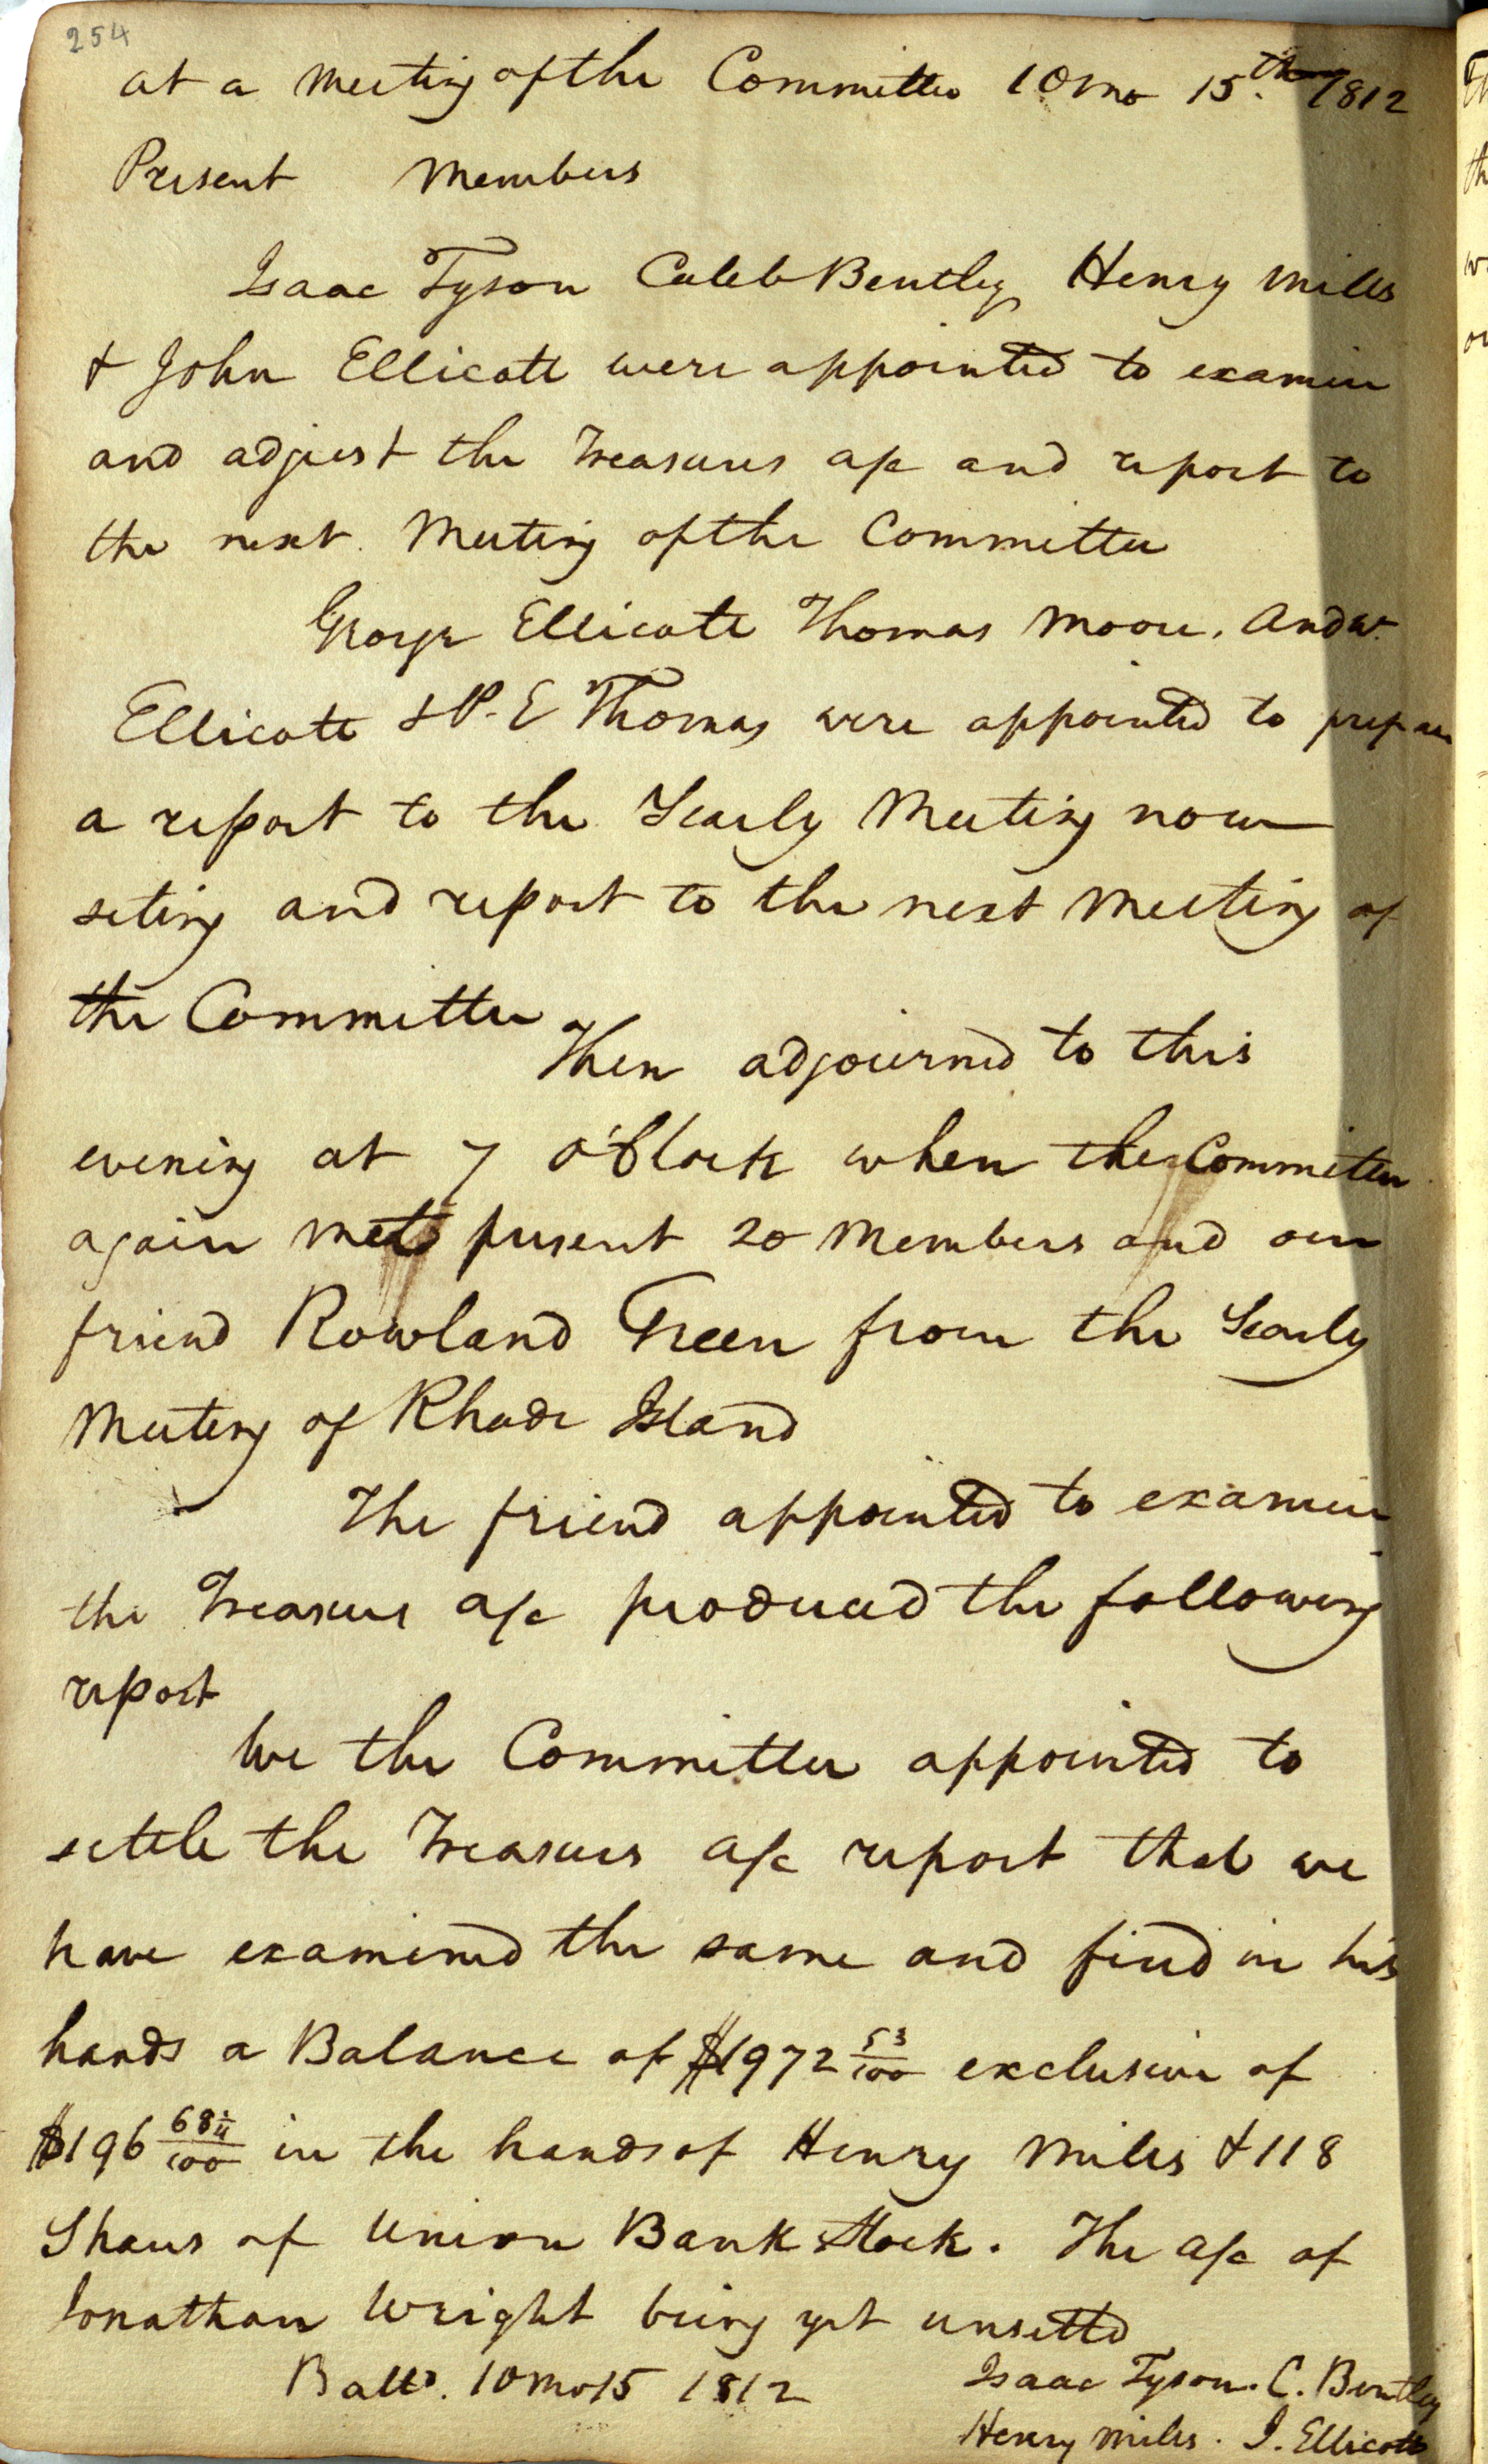 254
at a Meeting of the Committee 10 mo 15th. 1812
Present Members
Isaac Tyson Caleb Bentley Henry Mills
& John Ellicott were appointed to examin
and adjust the Treasures a/c and report to
the next Meeting of the Committee
George Ellicott Thomas Moore, Andw.
Ellicott & P. E Thomas were appointed to prepare
a report to the Yearly Meeting now
seting and report to the next Meeting of
the Committee
Then adjourned to this
evening at 7 o'Clock when the Committee
again met present 20 Members and our
friend Rowland Green from the Yearly
Meeting of Rhode Island
The friend appointed to examin
the Treasures a/c produced the following
report
We the Committee appointed to
settle the Treasures a/c report that we
have examined the same and find in his
hands a Balance of $1972 53/100 exclusive of
$196 68 1/4/100 in the hands of Henry Miles & 118
Shares of Union Bank Stock. The a/c of
Jonathan Wright being yet unsettd
Balto. 10 mo 15 1812 Isaac Tyson. C. Bentley
Henry Miles. J. Ellicott